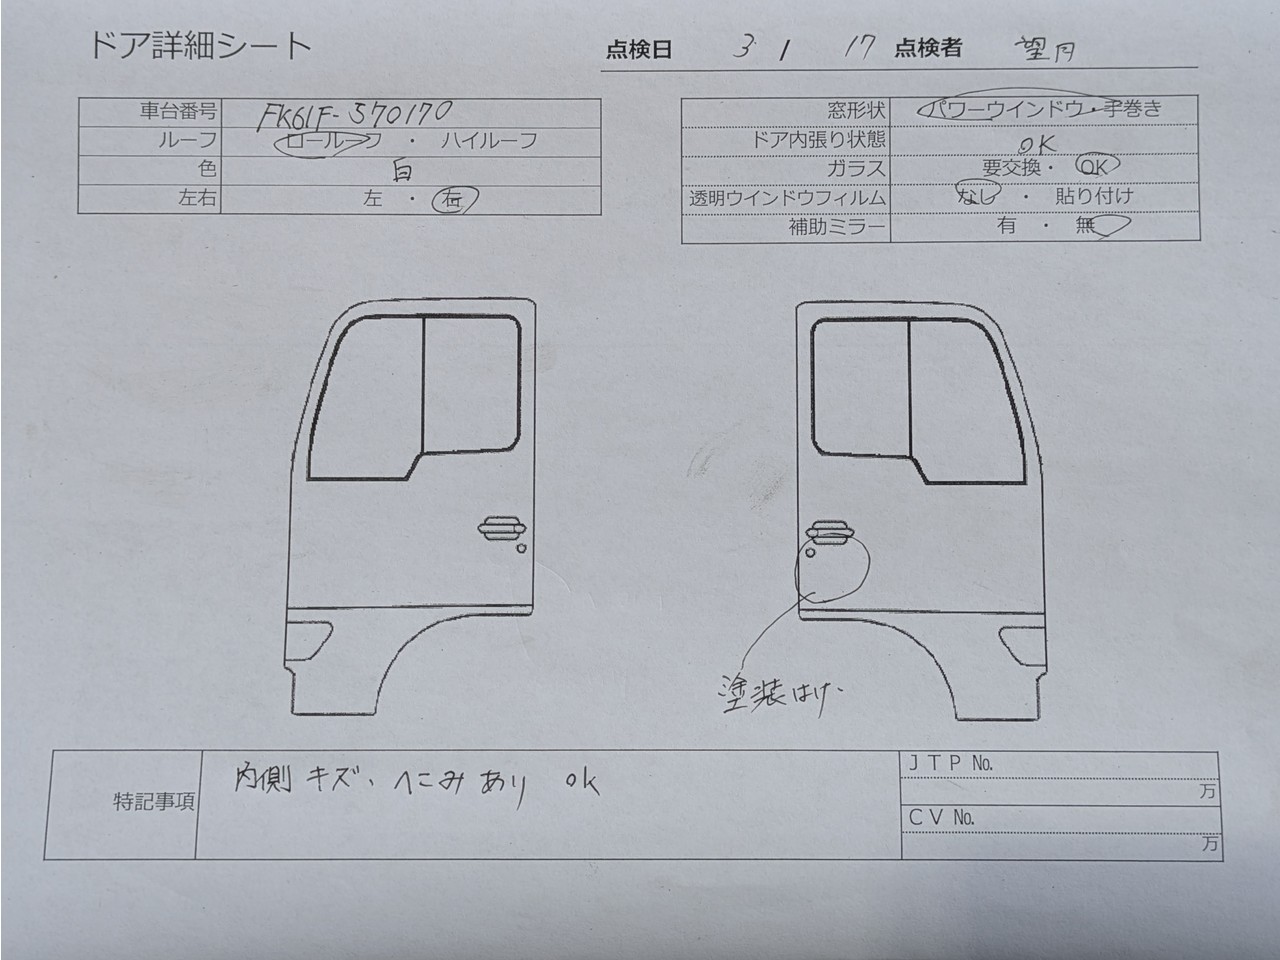 ドア詳細シート
点検日 3 / 17 点検者 望月
車台番号 FK61F-570170
ルーフ ロールーフ ・ ハイルーフ
色 白
左右 左 ・ 右
窓形状 パワーウインドウ・手巻き
ドア内張り状態 OK
ガラス 要交換・ OK
透明ウインドウフィルム なし ・ 貼り付け
補助ミラー 有 ・ 無
塗装はげ
特記事項 内側 キズ、へこみ あり ok
JTP No.
万
CV No.
万